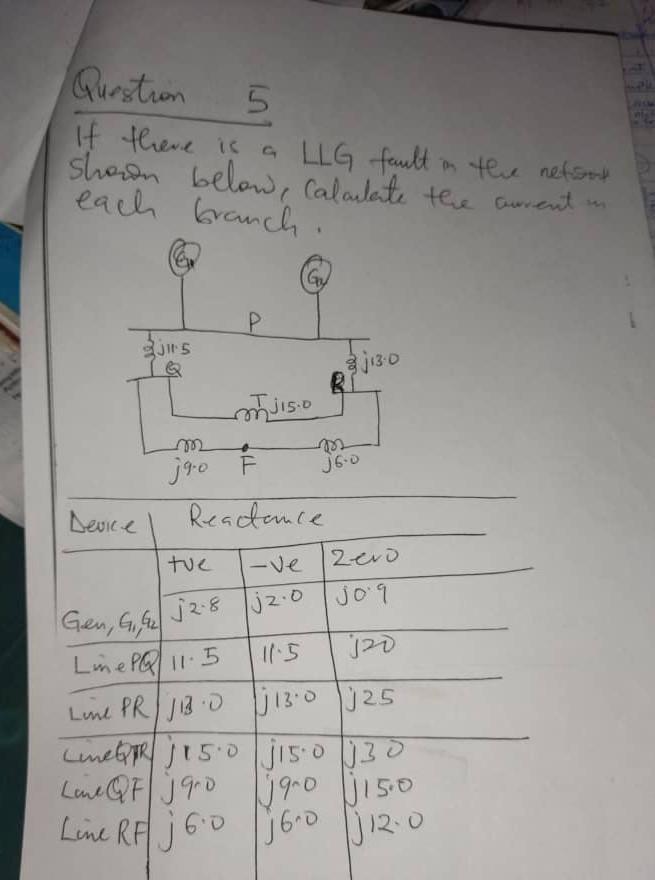 Question 5
If there is a LLG fault in the network
shown below, Calculate the current in
each branch.
G1 G2
P
j11.5
Q
R
j13.0
T j15.0
j9.0 F j6.0
Device Reactance
+ve -ve Zero
Gen, G1, G2 j2.8 j2.0 j0.9
Line PQ 11.5 11.5 j20
Line PR j13.0 j13.0 j25
Line QTR j15.0 j15.0 j30
Line QF j9.0 j9.0 j15.0
Line RF j6.0 j6.0 j12.0